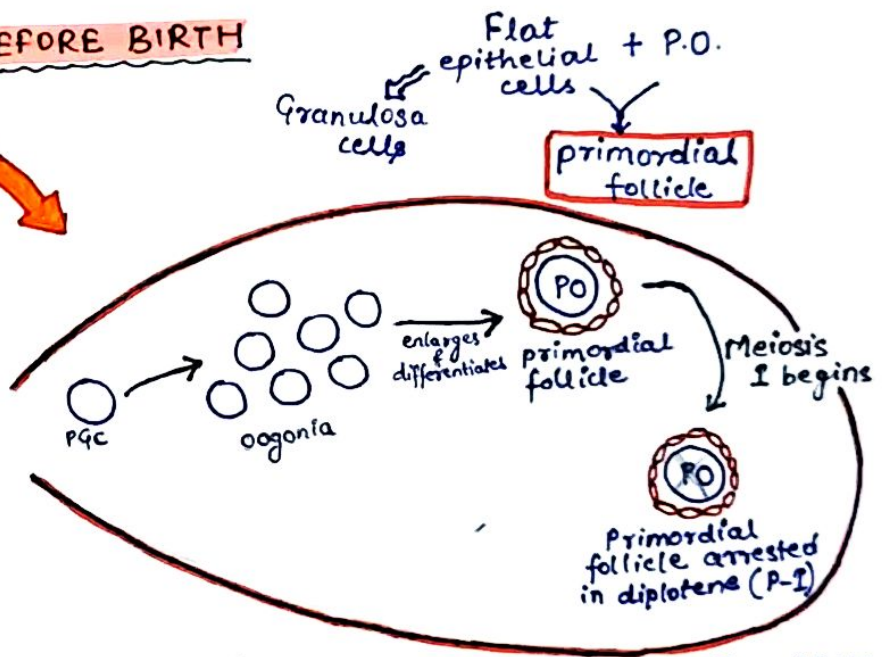 EFORE BIRTH
Flat
epithelial + P.O.
cells
Granulosa
cells
primordial
follicle
PO
enlarges
&
differentiates
primordial
follicle
Meiosis
I begins
PGC
oogonia
PO
Primordial
follicle arrested
in diplotene (P-I)